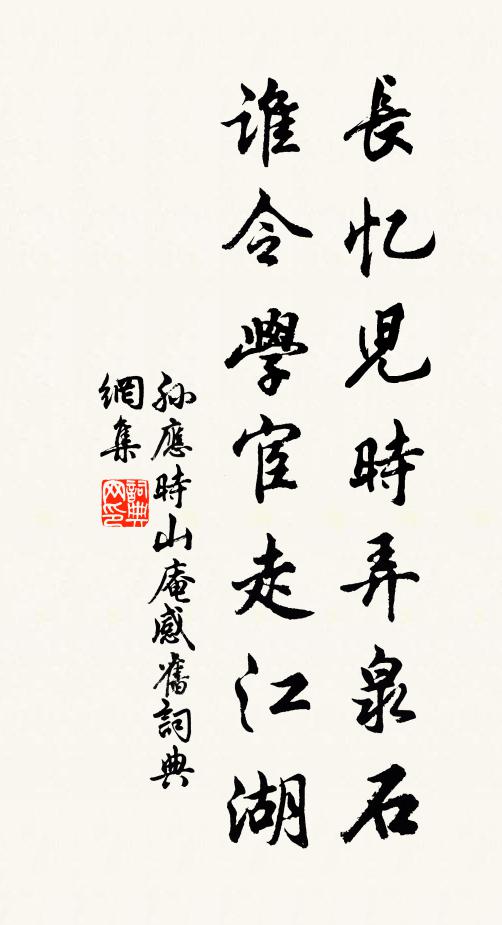 長忆児時弄泉石
谁令學宦走江湖
孙應時山庵感舊詞典
網集
詞典
网印